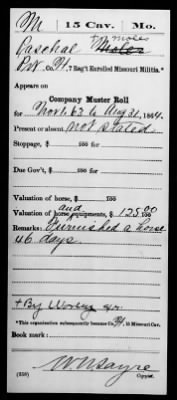 M | 15 Cav. | Mo.
+ Moles
Paschal Moles
Pvt, Co. H, 7 Reg't Enrolled Missouri Militia.*
Appears on
Company Muster Roll
for Nov 1, 63 to Aug 31, 1864.
Present or absent not stated
Stoppage, $ 100
for
Due Gov't, $ 100
for
Valuation of horse, $ 100
and
Valuation of horse equipments, $ 125.00
Remarks: Furnished a horse
46 days.
*This organization subsequently became Co. H, 15 Missouri Cav.
Book mark:
(359)
Copyist.